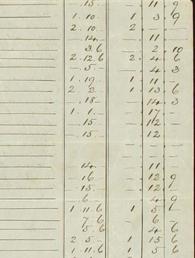 15 . 11 9
1 . 10 . 1 . 3 9
2 . 10 . 2 . -
14 . 11 -
3 . 6 2 10
2 . 12 . 6 2 . 4 6
5 . 4 3
1 . 19 1 . 11 -
2 2 1 . 13 6
18 . 14 3
1 . 1 . 17 -
15 . 12 -
15 . 12
14 . 11 -
16 . 12 9
15 . 12 9
6 4 9
1 . 11 . 6 1 5 -
7 6 6
5 . 6 4 6
2 . 5 . 1 15 6
1 . 11 . 6 1 5 6